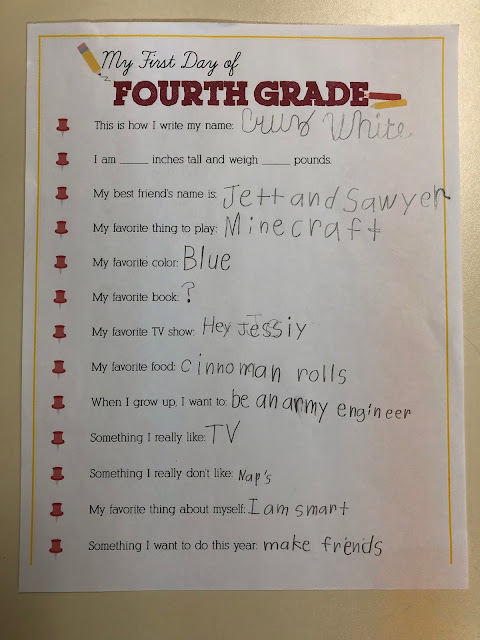 My First Day of
FOURTH GRADE
This is how I write my name: Cruz White
I am _____ inches tall and weigh _____ pounds.
My best friend's name is: Jett and Sawyer
My favorite thing to play: Minecraft
My favorite color: Blue
My favorite book: ?
My favorite TV show: Hey Jessiy
My favorite food: cinnoman rolls
When I grow up, I want to: be an army engineer
Something I really like: TV
Something I really don't like: Nap's
My favorite thing about myself: I am smart
Something I want to do this year: make friends